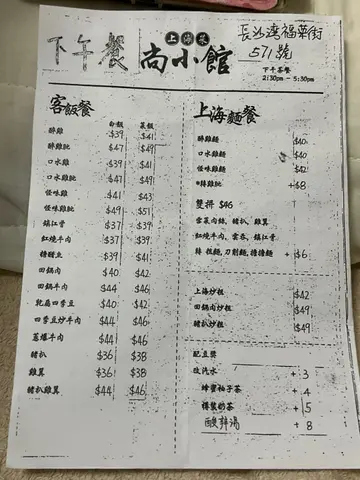 下午餐
上海菜
尚小館
長沙灣福華街
571號
下午茶餐
2:30pm - 5:30pm
客飯餐
白飯 菜飯
醉雞 $39 $41
醉雞髀 $47 $49
口水雞 $39 $41
口水雞髀 $47 $49
怪味雞 $41 $43
怪味雞髀 $49 $51
鎮江骨 $37 $39
紅燒牛肉 $37 $39
$39 $41
回鍋肉 $40 $42
回鍋牛肉 $44 $46
乾扁四季豆 $40 $42
四季豆炒牛肉 $44 $46
蔥爆牛肉 $44 $46
豬扒 $36 $38
雞翼 $36 $38
豬扒雞翼 $44 $46
上海麵餐
醉雞麵 $40
口水雞麵 $40
怪味雞麵 $42
*轉雞髀 +$8
雙拼 $46
雪菜肉絲, 豬扒, 雞翼
紅燒牛肉, 雲吞, 鎮江骨
轉 拉麵, 刀削麵, 擔擔麵 +$6
上海炒粗 $42
回鍋肉炒粗 $49
豬扒炒粗 $49
配豆漿
改汽水 +3
蜂蜜柚子茶 +4
樽裝奶茶 +5
酸辣湯 +8